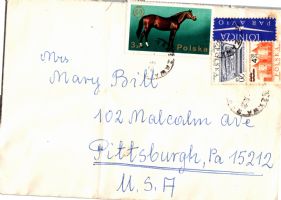 Polska
LOTNICZA
PAR AVION
POLSKA
Mrs
Mary Britt
102 Malcolm ave
Pittsburgh, Pa 15212
U.S.A